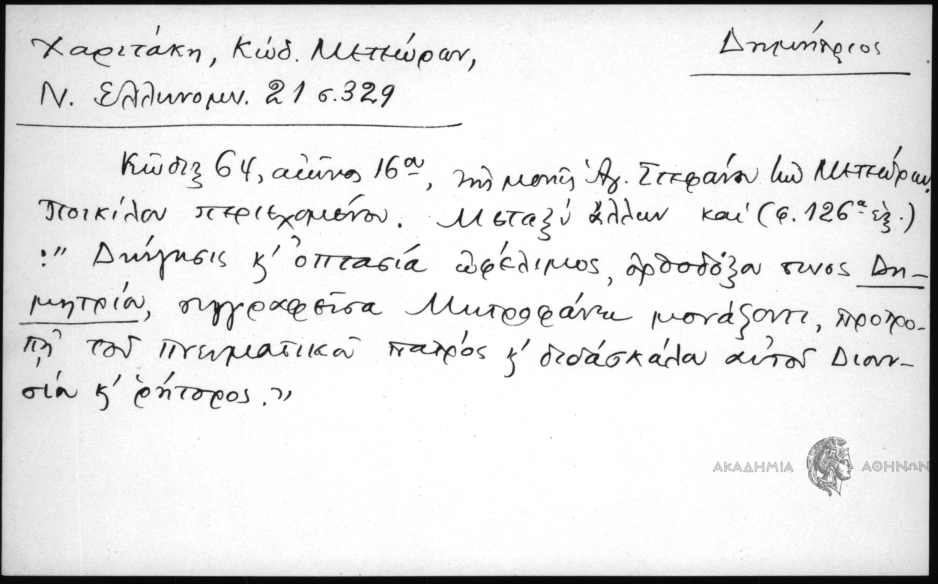 Χαριτάκη, Κώδ. Μετεώρων,
Δημήτριος
Ν. Ελληνομν. 21 σ. 329
Κῶδιξ 64, αἰῶνος 16ου, τῆς μονῆς Ἁγ. Στεφάνου τῶν Μετεώρων
Ποικίλου περιεχομένου. Μεταξὺ ἄλλων καὶ (φ. 126α ἑξ.)
:" Διήγησις κ' ὀπτασία ὠφέλιμος, ὀρθοδόξου τινος Δη-
μητρίου, συγγραφεῖσα Μητροφάνει μονάζοντι, προτρο-
πῇ τοῦ πνευματικοῦ πατρός κ' διδασκάλου αὐτοῦ Διονυ-
σίου κ' ῥήτορος."
ΑΚΑΔΗΜΙΑ ΑΘΗΝΩΝ